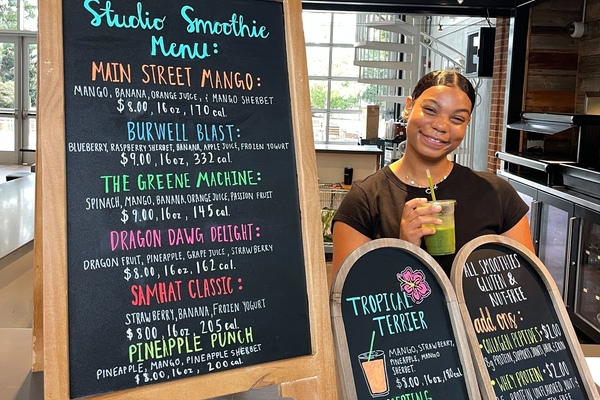 Studio Smoothie
Menu:
MAIN STREET MANGO:
MANGO, BANANA, ORANGE JUICE, & MANGO SHERBET
$8.00, 16oz, 170 cal.
BURWELL BLAST:
BLUEBERRY, RASPBERRY SHERBET, BANANA, APPLE JUICE, FROZEN YOGURT
$9.00, 16oz, 332 cal.
THE GREENE MACHINE:
SPINACH, MANGO, BANANA, ORANGE JUICE, PASSION FRUIT
$9.00, 16oz, 145 cal.
DRAGON DAWG DELIGHT:
DRAGON FRUIT, PINEAPPLE, GRAPE JUICE, STRAWBERRY
$8.00, 16oz, 162 cal.
SAMHAT CLASSIC:
STRAWBERRY, BANANA, FROZEN YOGURT
$8.00, 16oz, 205 cal.
PINEAPPLE PUNCH
PINEAPPLE, MANGO, PINEAPPLE SHERBET
$8.00, 16oz, 200 cal.
TROPICAL
TERRIER
MANGO, STRAWBERRY,
PINEAPPLE, MANGO
SHERBET.
$8.00, 16oz, 180 cal.
ALL SMOOTHIES
GLUTEN &
NUT-FREE
add ons:
COLLAGEN PEPTIDES $2.00
WHEY PROTEIN $2.00